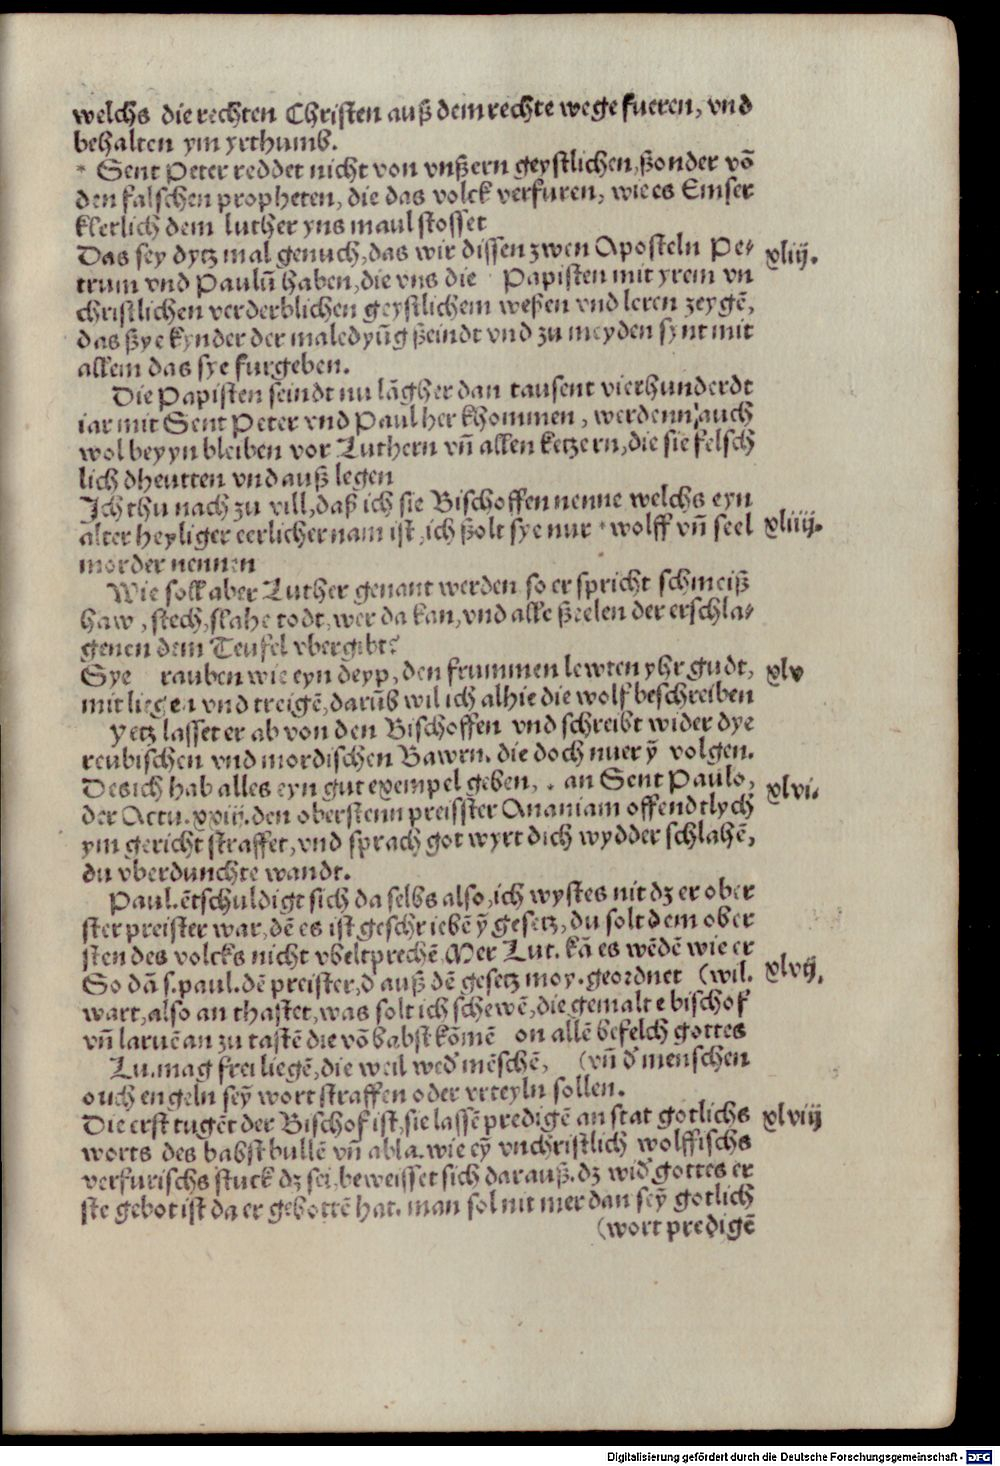 welchs die rechten Christen auß dem rechte wege fueren, vnd
behalten ym yrthumb.
* Sent Peter reddet nicht von vnßern geystlichen, ßonder vō
den falschen propheten, die das volck verfuren, wie es Emser
klerlich dem luther yns maul stosset
Das sey dytz mal genuch, das wir dissen zwen Aposteln Pe- xliij.
trum vnd Paulū haben, die vns die Papisten mit yrem vn
christlichen verderblichen geystlichem weßen vnd leren zeygē,
das ßye kynder der maledyūg ßeindt vnd zu meyden synt mit
allem das sye furgeben.
Die Papisten seindt nu lāgher dan tausent vierhunderdt
iar mit Sent Peter vnd Paul her khommen, werdenn auch
wol bey yn bleiben vor Luthern vn̄ allen ketzern, die sie felsch
lich dheutten vnd auß legen
Ich thu nach zu vill, daß ich sie Bischoffen nenne welchs eyn
alter heyliger eerlicher nam ist, ich ßolt sye nur * wolff vn̄ seel xliiij.
morder nennen
Wie soll aber Luther genant werden so er spricht schmeiß
haw, stech, slahe todt, wer da kan, vnd alle ßeelen der erschla-
genen dem Teufel vbergibt?
Sye rauben wie eyn deyp, den frummen lewten yhr gudt, xlv
mit liegen vnd treigē, darūb wil ich alhie die wolf beschreiben
Yetz lasset er ab von den Bischoffen vnd schreibt wider dye
reubischen vnd mordischen Bawrn. die doch nuer ȳ volgen.
Des ich hab alles eyn gut exempel geben, . an Sent Paulo, xlvi.
der Actu. xxiij. den oberstenn preisster Ananiam offendtlych
ym gericht straffet, vnd sprach got wyrt dich wydder schlahē,
du vberdunchte wandt.
Paul. ētschuldigt sich da selbs also, ich wystes nit dz er ober
ster preister war, dē es ist geschriebē ȳ gesetz, du solt dem ober
sten des volcks nicht vbeltprechē. Mer Lut. kā es wēdē wie er
So dā s. paul. dē preister, d auß dē gesetz moy. geordnet (wil. xlvij.
wart, also an thastet, was solt ich schewē, die gemalte bischof
vn̄ laruē an zu tastē die vō babst kōmē on allē befelch gottes
Lu. mag frei liegē, die weil wed' mēschē, (vn̄ d' menschen
ouch engeln sey̅ wort straffen oder vrteyln sollen.
Die erst tugēt der Bischof ist, sie lassē predigē an stat gotlichs xlviij
worts des babst bullē vn̄ abla. wie ey̅ vnchristlich wolffischs
verfurischs stuck dz sei, beweisset sich darauß. dz wid' gottes er
ste gebot ist da er gebottē hat. man sol nit mer dan sey̅ gotlich
(wort predigē
Digitalisierung gefördert durch die Deutsche Forschungsgemeinschaft - DFG